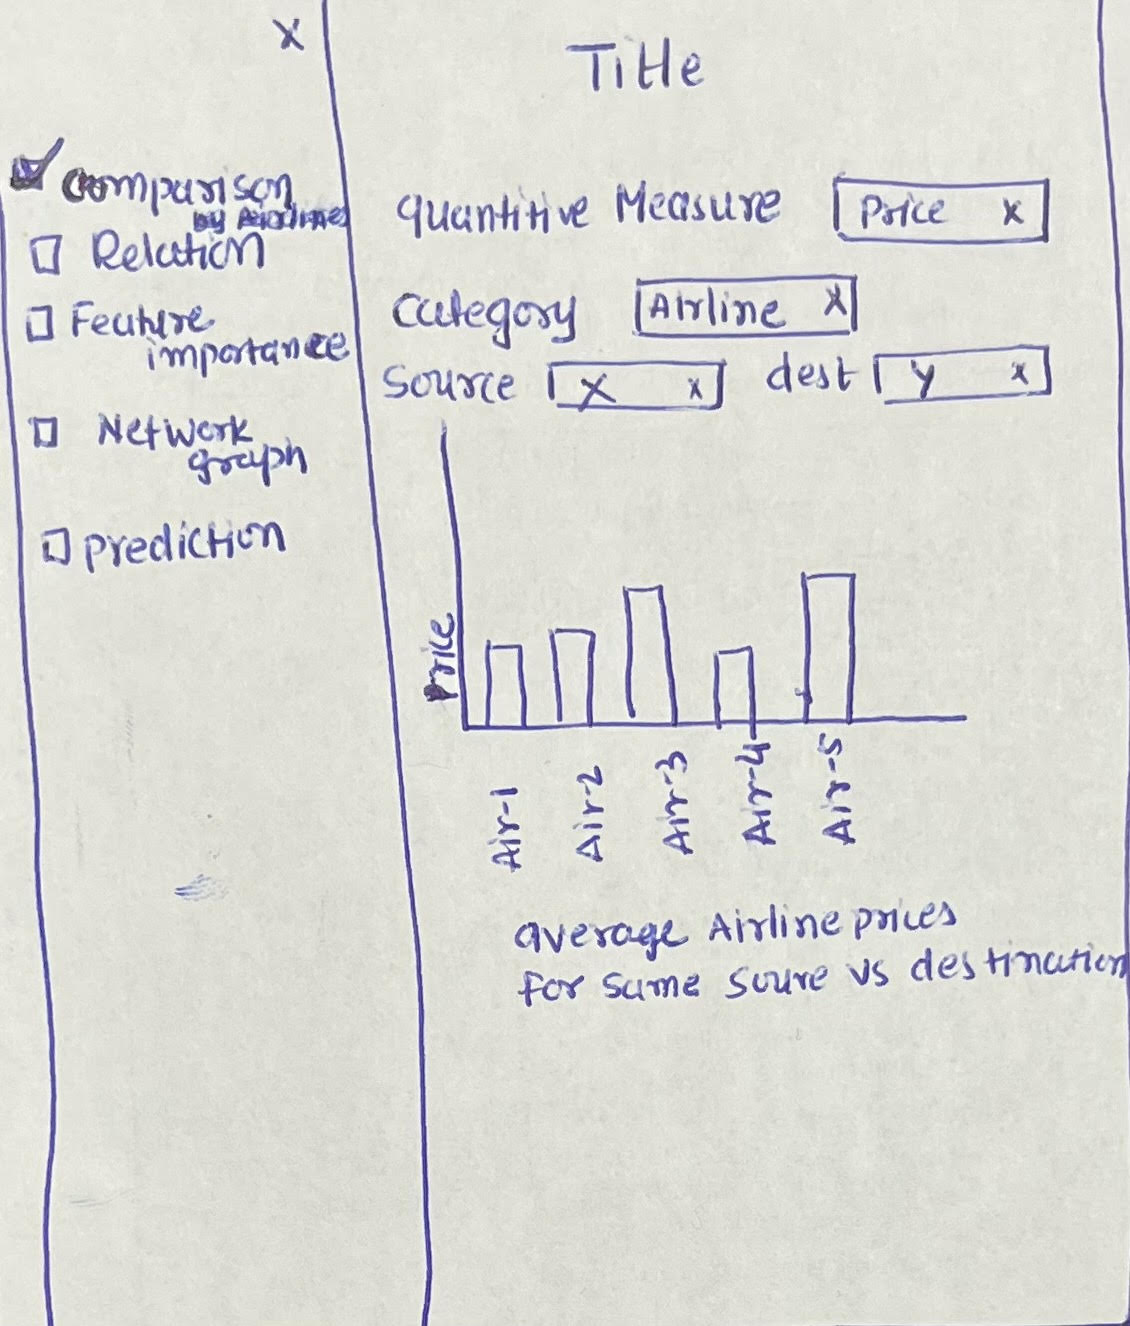 X
Title
Comparison
by Airlines
Relation
Feature
importance
Network
graph
prediction
quantitive Measure Price x
Category Airline x
Source X x dest y x
Price
Air-1
Air-2
Air-3
Air-4
Air-5
average Airline prices
for same soure vs destination